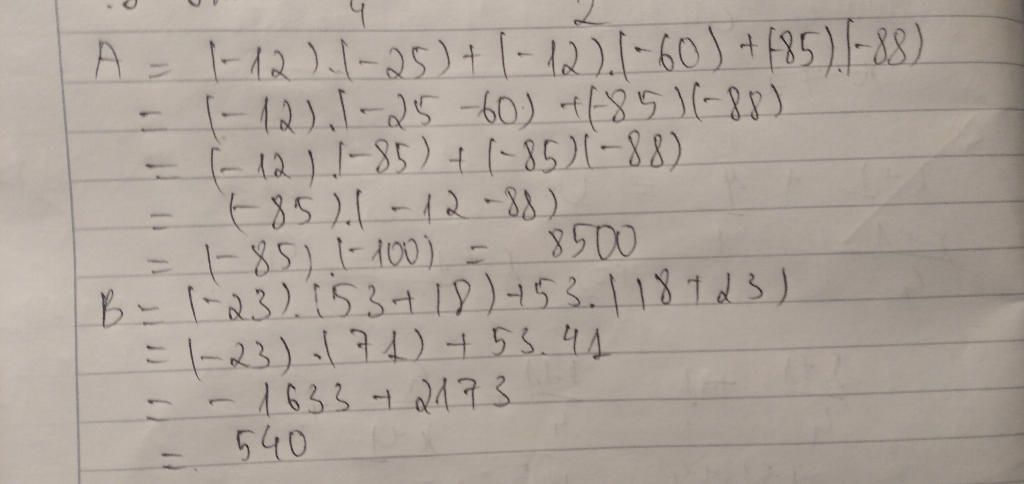 4 2
A = (-12).(-25)+(-12).(-60)+(-85)(-88)
= (-12).(-25-60)+(-85)(-88)
= (-12).(-85)+(-85)(-88)
= (-85).(-12-88)
= (-85).(-100) = 8500
B = (-23).(53+18)+53.(18+23)
= (-23).(71)+53.41
= -1633+2173
= 540